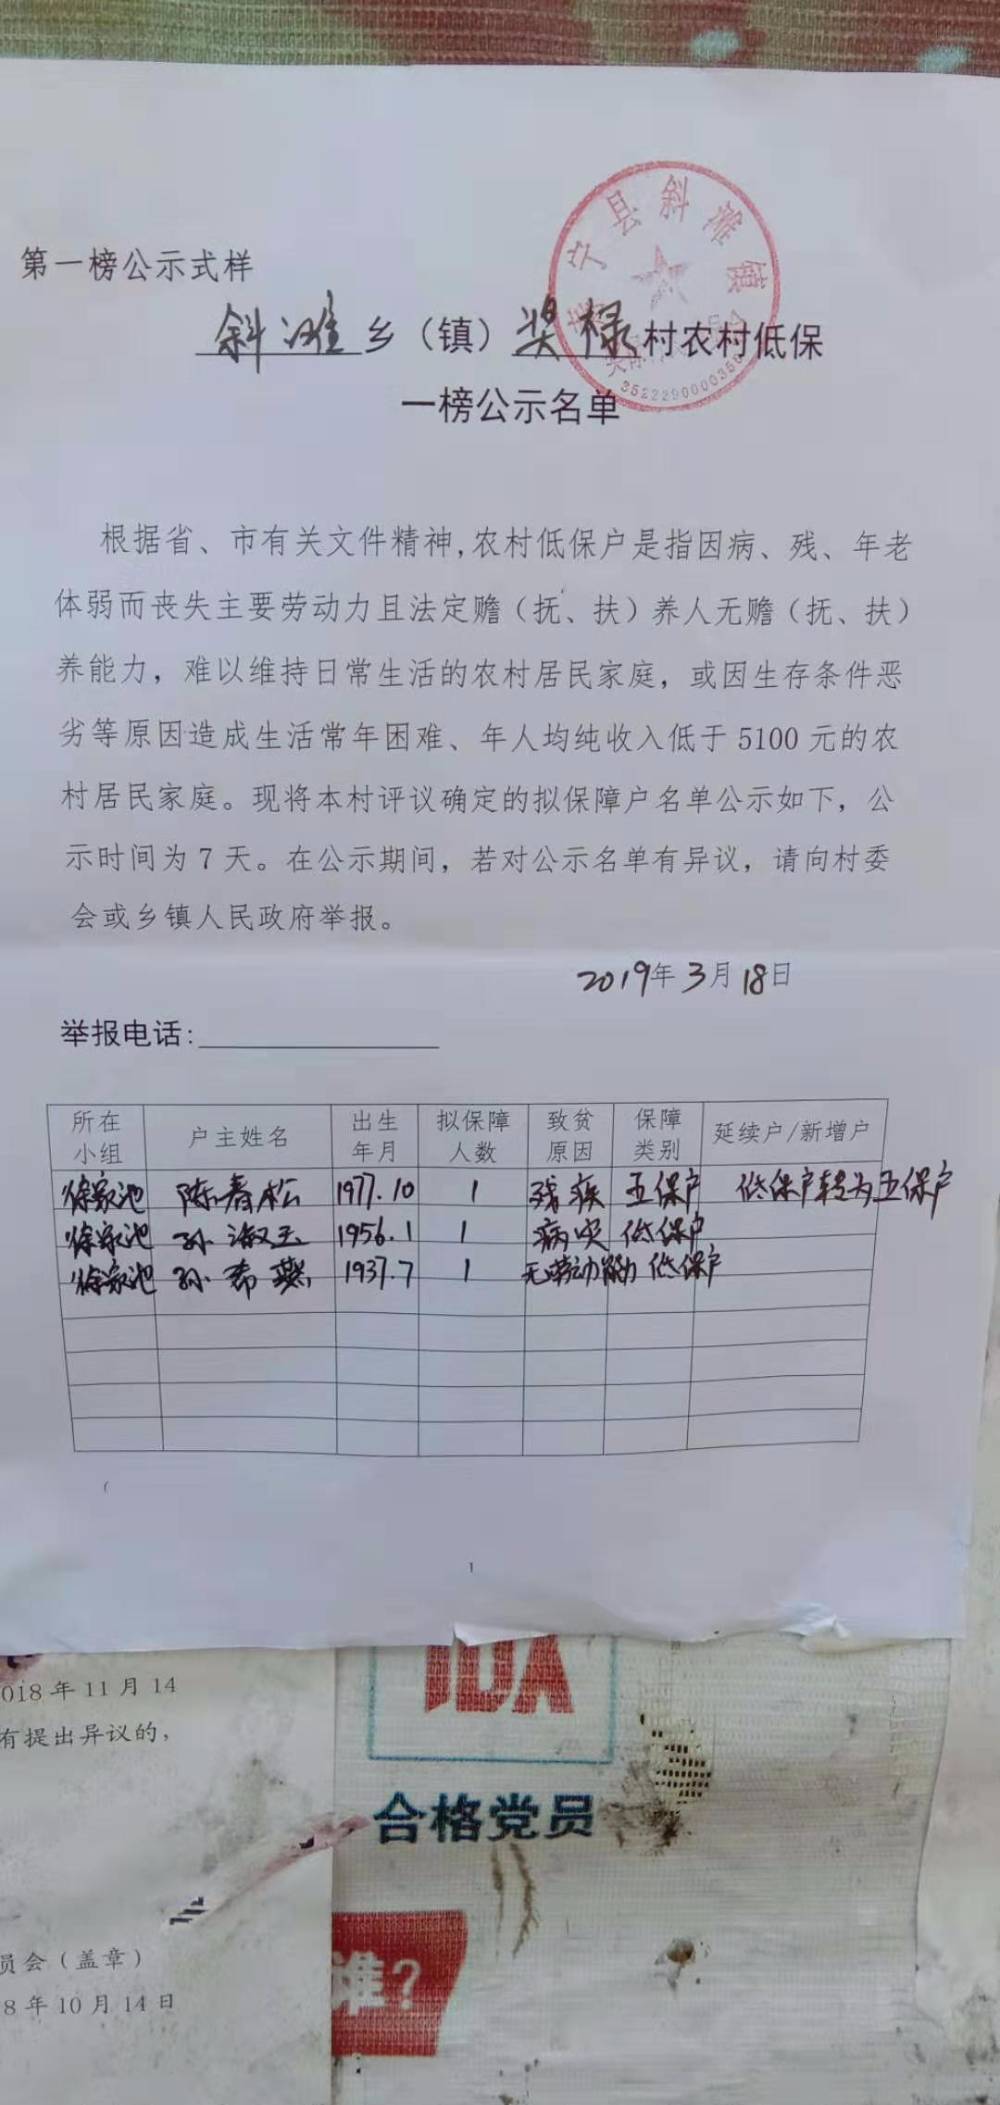 第一榜公示式样
斜滩乡（镇）奖禄村农村低保
一榜公示名单
宁县斜滩镇
根据省、市有关文件精神,农村低保户是指因病、残、年老
体弱而丧失主要劳动力且法定赡（抚、扶）养人无赡（抚、扶）
养能力，难以维持日常生活的农村居民家庭，或因生存条件恶
劣等原因造成生活常年困难、年人均纯收入低于 5100 元的农
村居民家庭。现将本村评议确定的拟保障户名单公示如下，公
示时间为 7 天。在公示期间，若对公示名单有异议，请向村委
会或乡镇人民政府举报。
2019年 3月 18日
举报电话:
所在小组 户主姓名 出生年月 拟保障人数 致贫原因 保障类别 延续户/新增户
徐家池 陈春松 1977.10 1 残疾 五保户 低保户转为五保户
徐家池 孙淑玉 1956.1 1 病灾 低保户
徐家池 孙希 1937.7 1 无劳动能力 低保户
1
018 年 11 月 14
有提出异议的，
合格党员
员会（盖章）
8 年 10 月 14 日
谁？